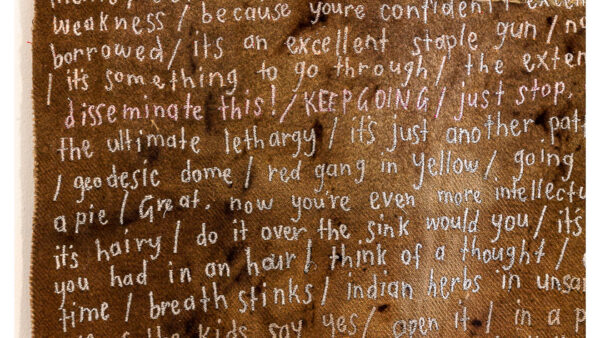 weakness / because youre confident
borrowed / its an excellent staple gun /
/ it's something to go through / the exten
disseminate this! / KEEP GOING / just stop.
the ultimate lethargy / it's just another pat
/ geodesic dome / red gang in yellow / going
a pie / Great. now you're even more intellectu
it's hairy / do it over the sink would you / it's
you had in an hour / think of a thought /
time / breath stinks / indian herbs in unsa
the kids say yes / open it / in a p